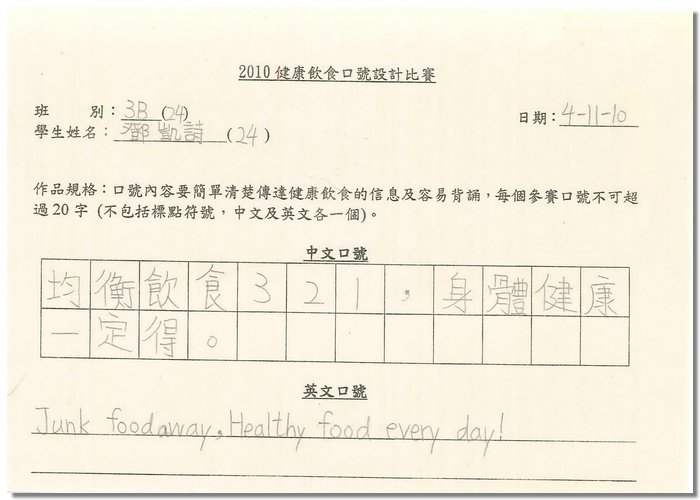 2010 健康飲食口號設計比賽
班 別：3B (24)
日期：4-11-10
學生姓名：鄧凱詩 (24)
作品規格：口號內容要簡單清楚傳達健康飲食的信息及容易背誦，每個參賽口號不可超
過20字 (不包括標點符號，中文及英文各一個)。
中文口號
均衡飲食321，身體健康
一定得。
英文口號
Junk food away, Healthy food every day!